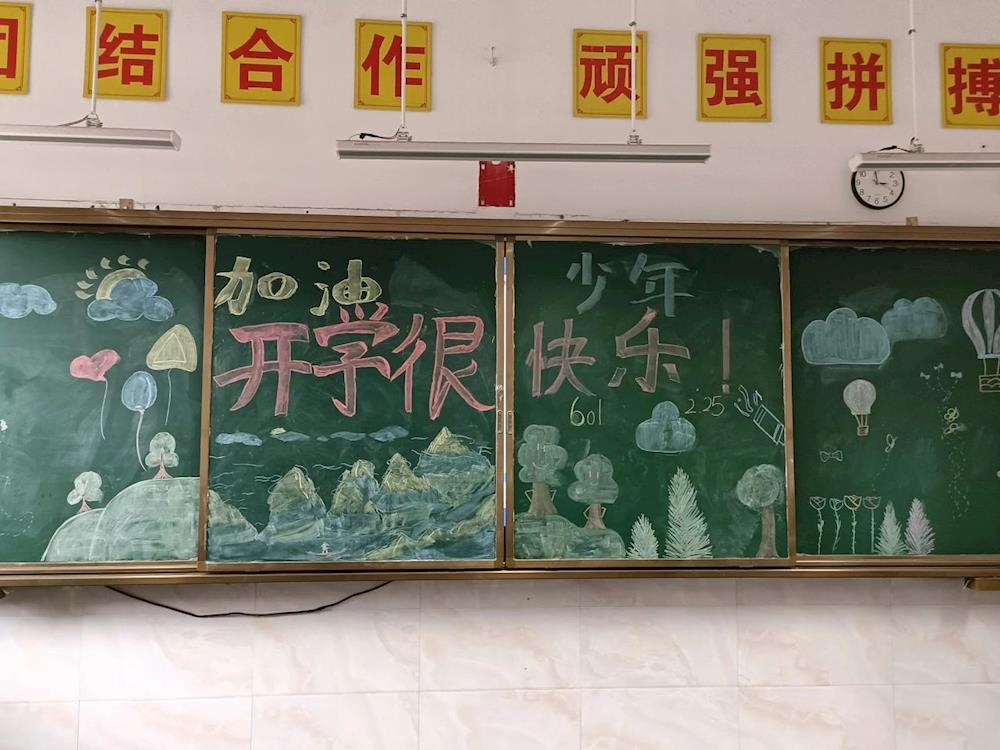 团结合作 顽强拼搏
加油 少年
开学很快乐！
601 2.25